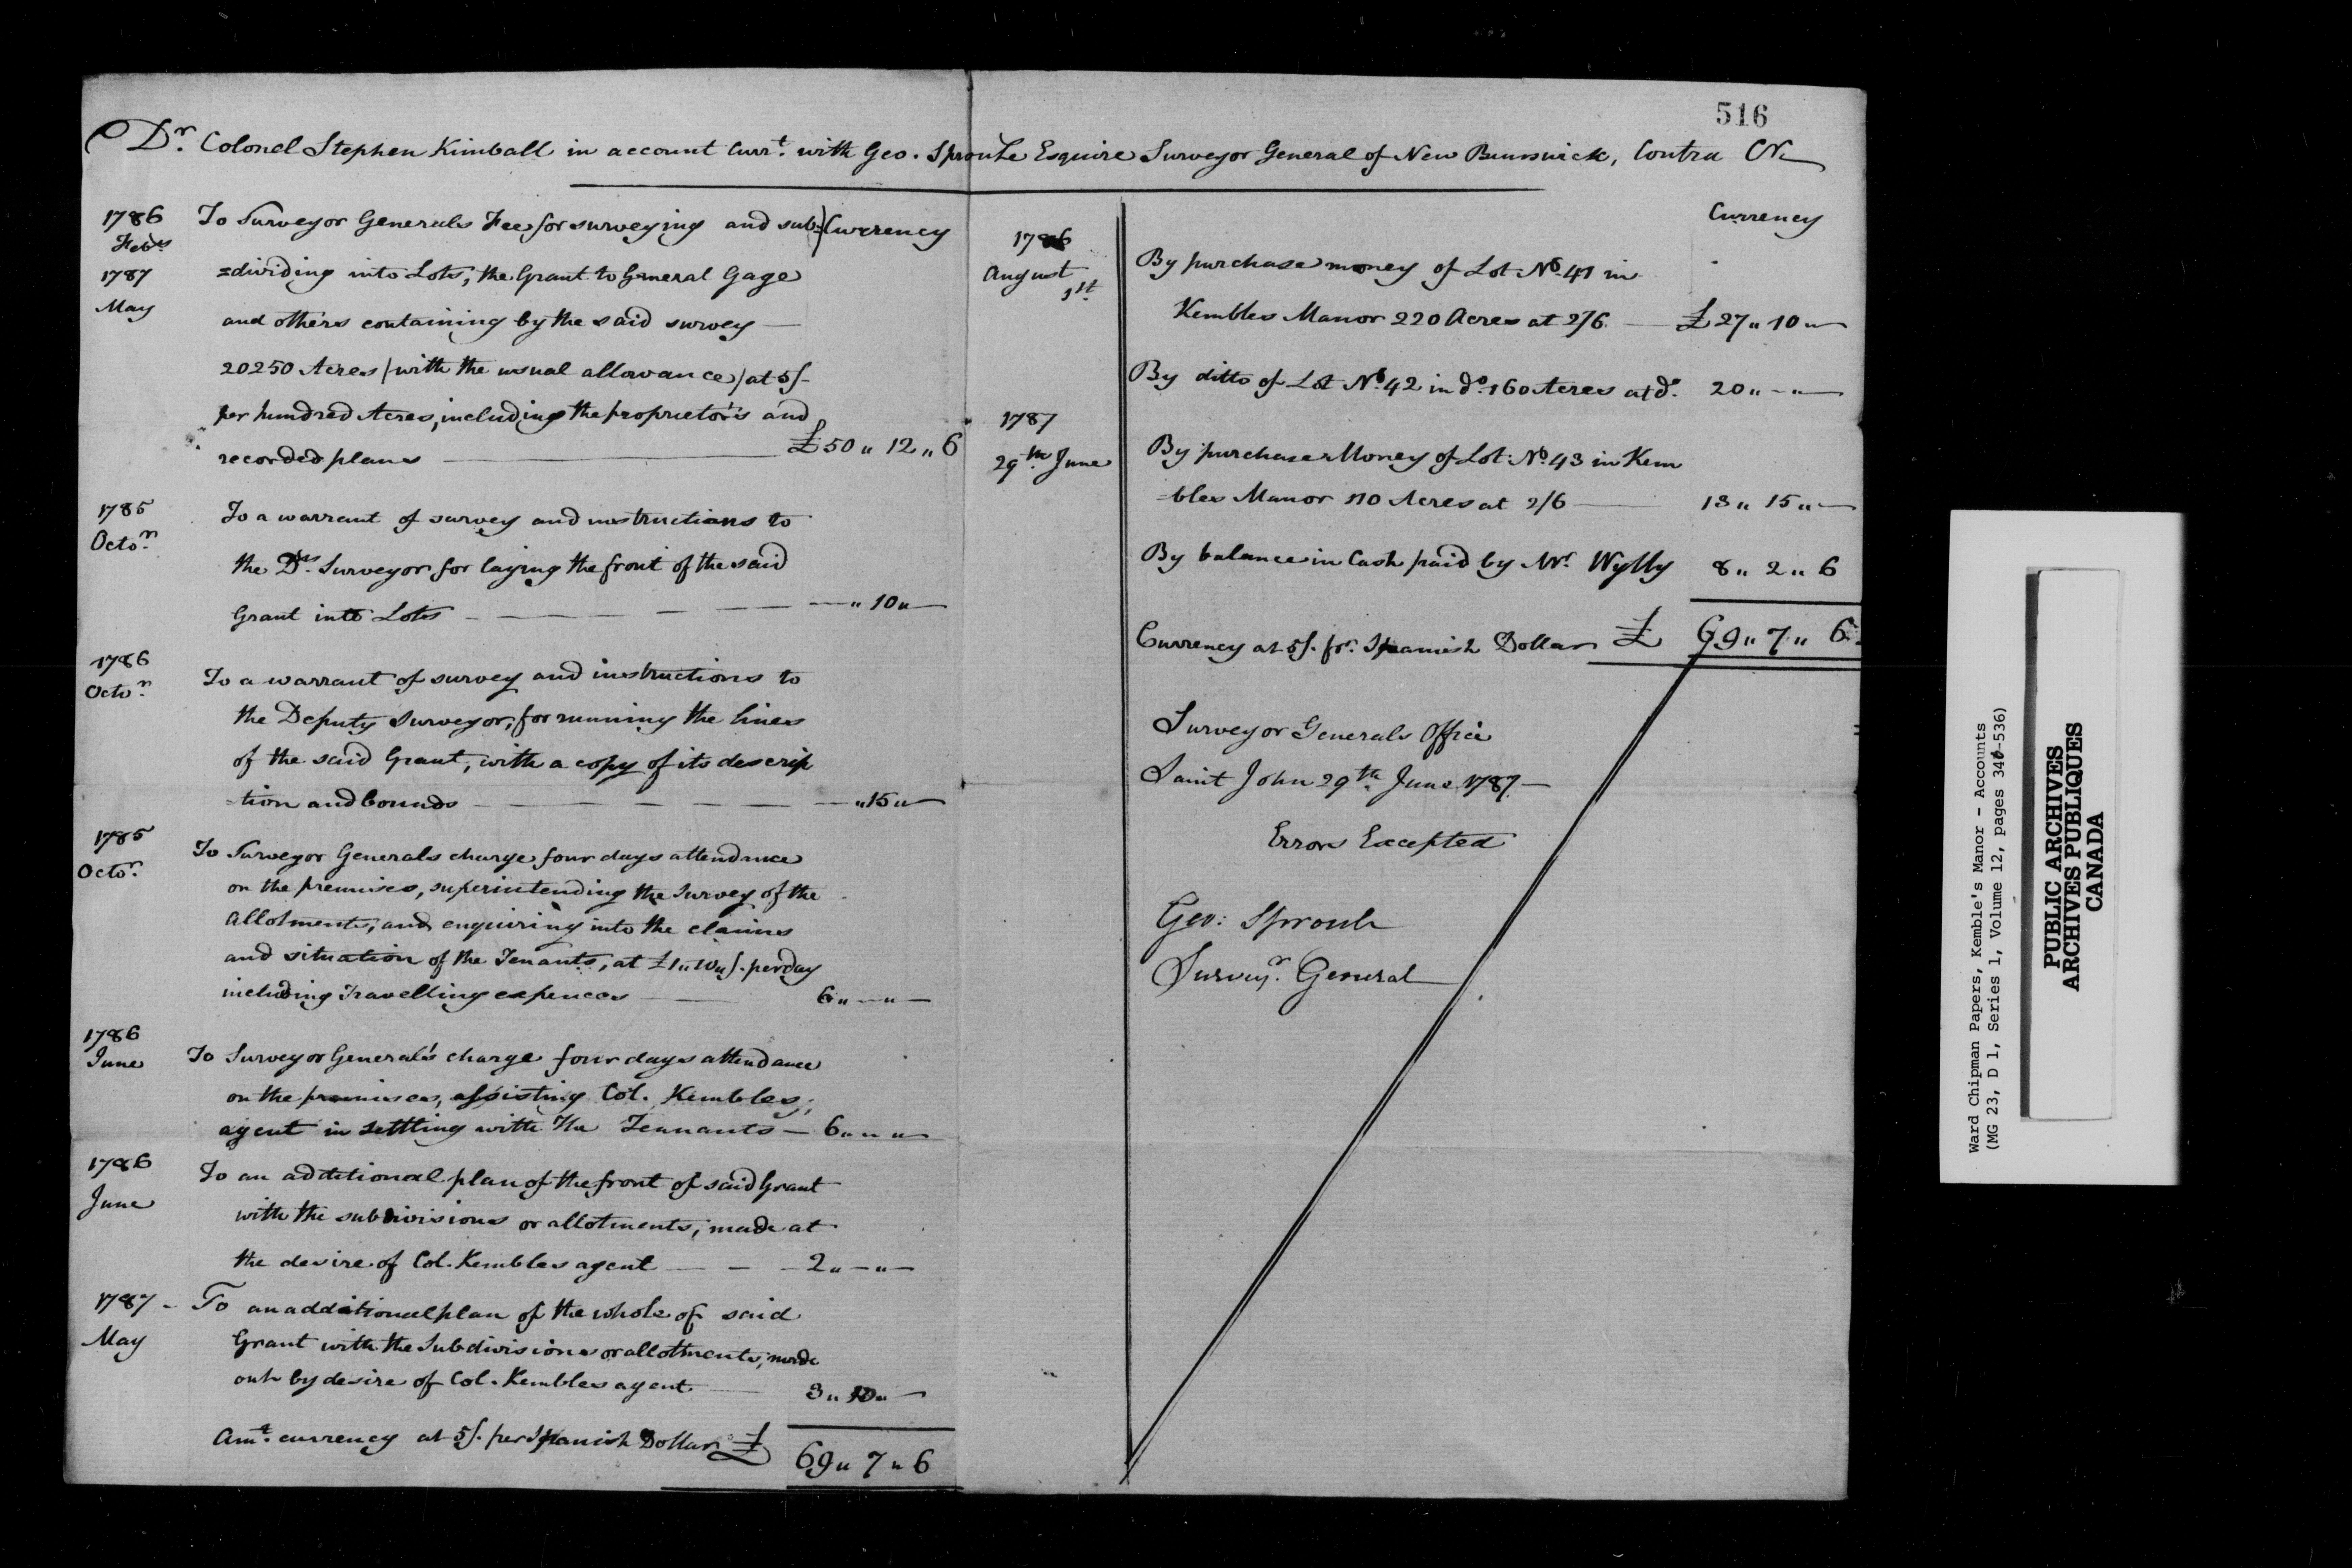 516
Dr. Colonel Stephen Kimball in account Currt. with Geo. Sproule Esquire Surveyor General of New Brunswick, Contra Cr.
1786
Feby
1787
May
To Surveyor Generals Fee for surveying and sub= Currency
=dividing into Lots, the Grant to General Gage
and others containing by the said survey —
20250 Acres /with the usual allowance/ at 5/-
per hundred Acres, including the proprietor's and
recorded plans — £50 " 12 " 6
1785
Octor.
To a warrant of survey and instructions to
the Dy. Surveyor for laying the front of the said
Grant into Lots — — — — " 10 " —
1786
Octor.
To a warrant of survey and instructions to
the Deputy Surveyor, for running the lines
of the said Grant, with a copy of its descrip
-tion and bounds — — — — — " 15 " —
1785
Octor.
To Surveyor Generals charge four days attendance
on the premises, superintending the Survey of the
allotments, and enquiring into the claims
and situation of the Tenants, at £1 " 10 " /. per day
including Travelling expences — 6 " — " —
1786
June
To Surveyor General's charge four days attendance
on the premises, assisting Col. Kembles,
agent in settling with the Tennants — 6 " " "
1786
June
To an additional plan of the front of said Grant
with the subdivisions or allotments, made at
the desire of Col. Kembles agent — — — 2 " — " —
1787 -
May
To an additional plan of the whole of said
Grant with the Subdivisions or allotments, made
out by desire of Col. Kembles agent — 3 " 10 " —
Amt. currency at 5/. per Spanish Dollar £ 69 " 7 " 6
Currency
1786
August
1st.
By purchase money of Lot No. 41 in
Kembles Manor 220 Acres at 2/6. — £27 " 10 " —
By ditto of Lot No. 42 in do. 160 Acres at do. 20 " — " —
1787
29th. June
By purchase Money of Lot No. 43 in Kem
=bles Manor 110 Acres at 2/6 — 13 " 15 " —
By balance in Cash paid by Mr. Wylly 8 " 2 " 6
Currency at 5/. pr. Spanish Dollar £ 69 " 7 " 6
Surveyor Generals Office
Saint John 29th. June 1787. —
Errors Excepted
Geo: Sproule
Surveyr. General
Ward Chipman Papers, Kemble's Manor - Accounts
(MG 23, D 1, Series 1, Volume 12, pages -536)
PUBLIC ARCHIVES
ARCHIVES PUBLIQUES
CANADA